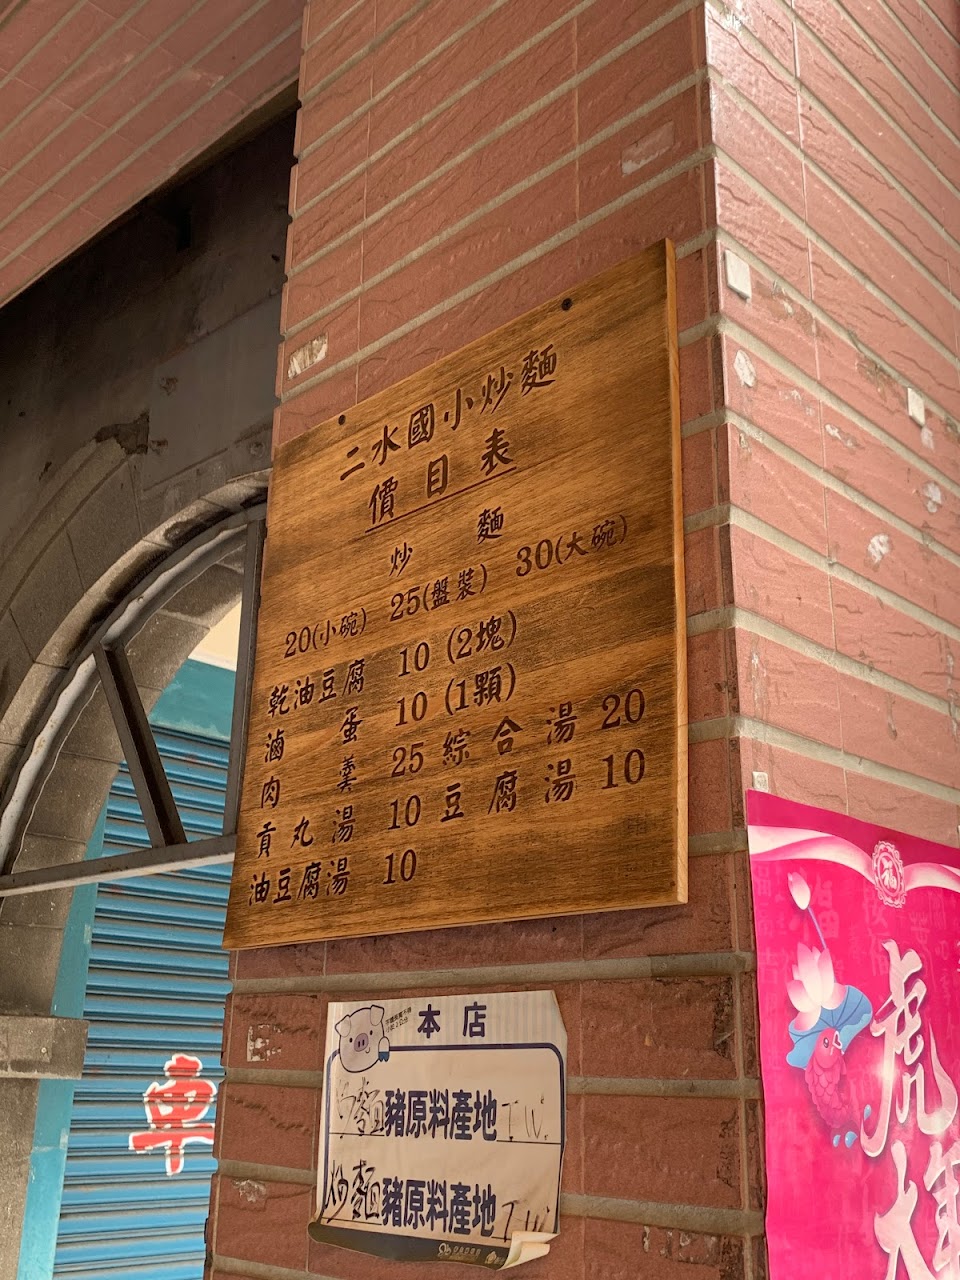 二水國小炒麵
價目表
炒麵
20(小碗) 25(盤裝) 30(大碗)
乾油豆腐 10 (2塊)
滷蛋 10 (1顆)
肉羹 25 綜合湯 20
貢丸湯 10 豆腐湯 10
油豆腐湯 10
本店
炒麵豬原料產地TW.
炒麵豬原料產地TW
車
福
虎